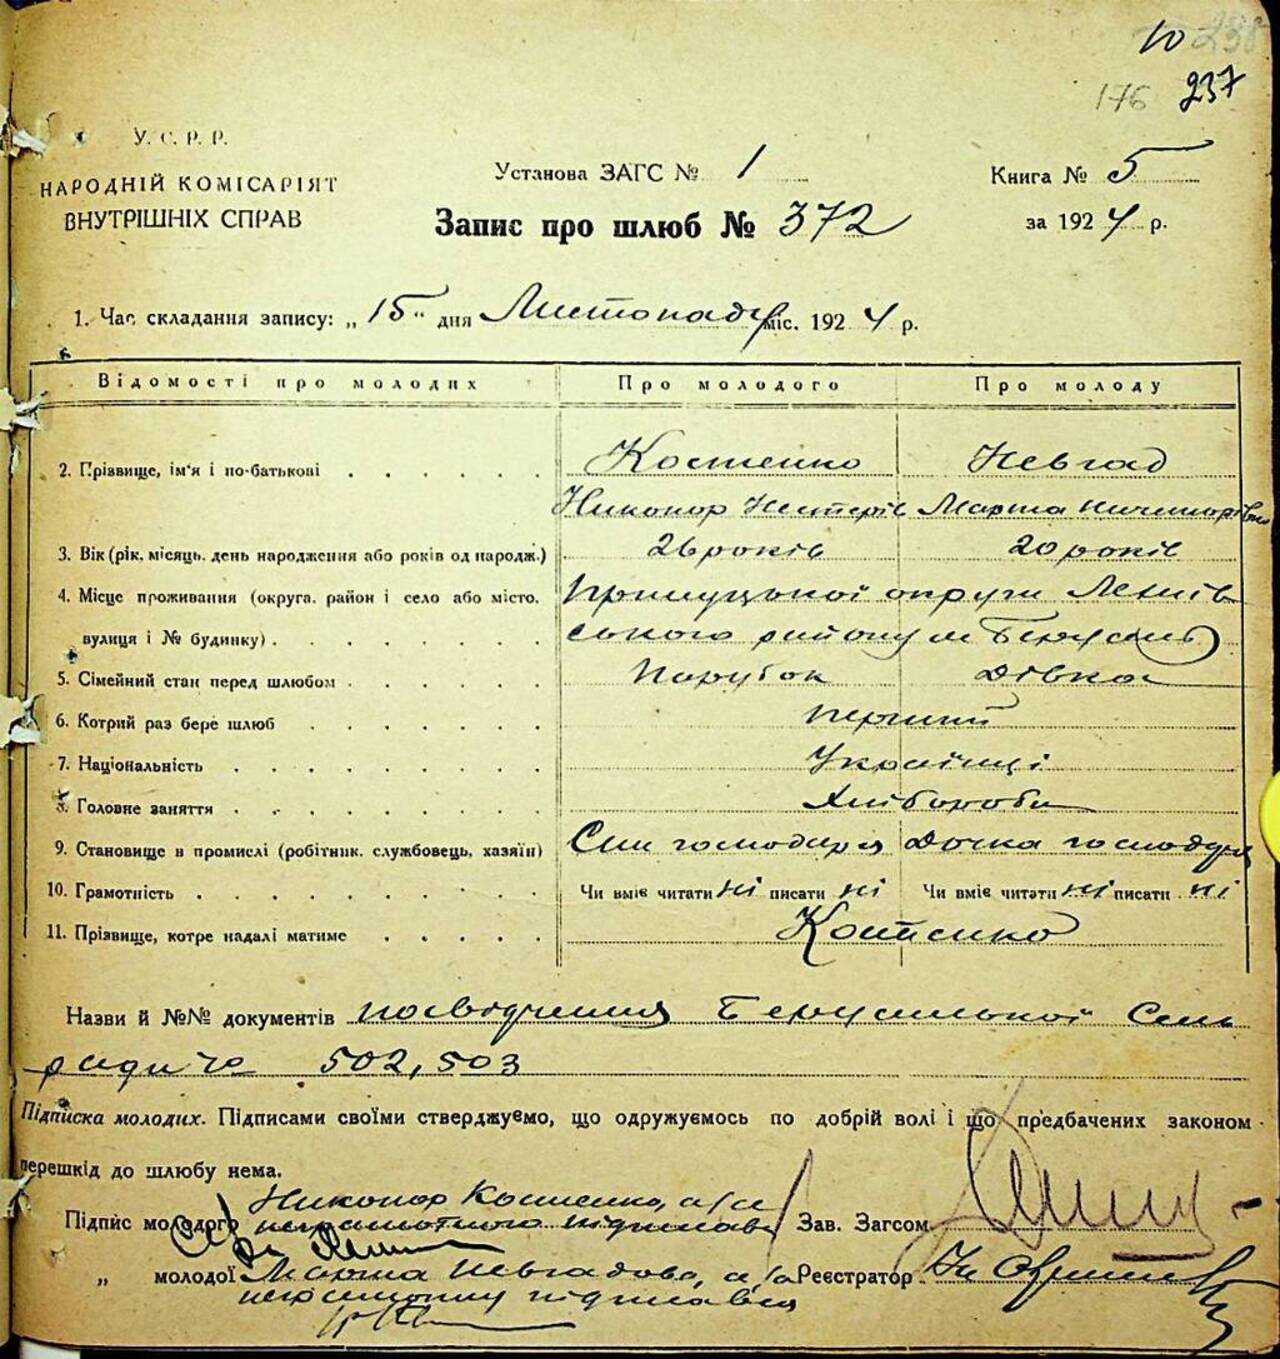 10 238
176 237
У. С. Р. Р.
НАРОДНІЙ КОМІСАРІЯТ
ВНУТРІШНІХ СПРАВ
Установа ЗАГС № 1
Книга № 5
Запис про шлюб № 372
за 1924 р.
1. Час складання запису: „15" дня Листопаду міс. 1924 р.
Відомості про молодих Про молодого Про молоду
2. Прізвище, ім'я і по-батькові Костенко Невгад
Никонор Нестерів Марта
3. Вік (рік, місяць, день народження або років од народж.) 26 років 20 років
4. Місце проживання (округа, район і село або місто, Прилуцької округи
вулиця і № будинку) ського району
5. Сімейний стан перед шлюбом Парубок Дівка
6. Котрий раз бере шлюб перший
7. Національність Українці
8. Головне заняття Хлібороби
9. Становище в промислі (робітник, службовець, хазяїн) Син господаря Дочка господаря
10. Грамотність Чи вміє читати ні писати ні Чи вміє читати ні писати ні
11. Прізвище, котре надалі матиме Костенко
Назви й №№ документів посвідчення Сіль
ради 502, 503
Підписка молодих. Підписами своїми стверджуємо, що одружуємось по добрій волі і що предбачених законом
перешкід до шлюбу нема.
Никонор Костенко, а за
Підпис молодого неграмотного підписав Зав. Загсом
„ молодої Марта Невгадова, а за Реєстратор
неграмотну підписався